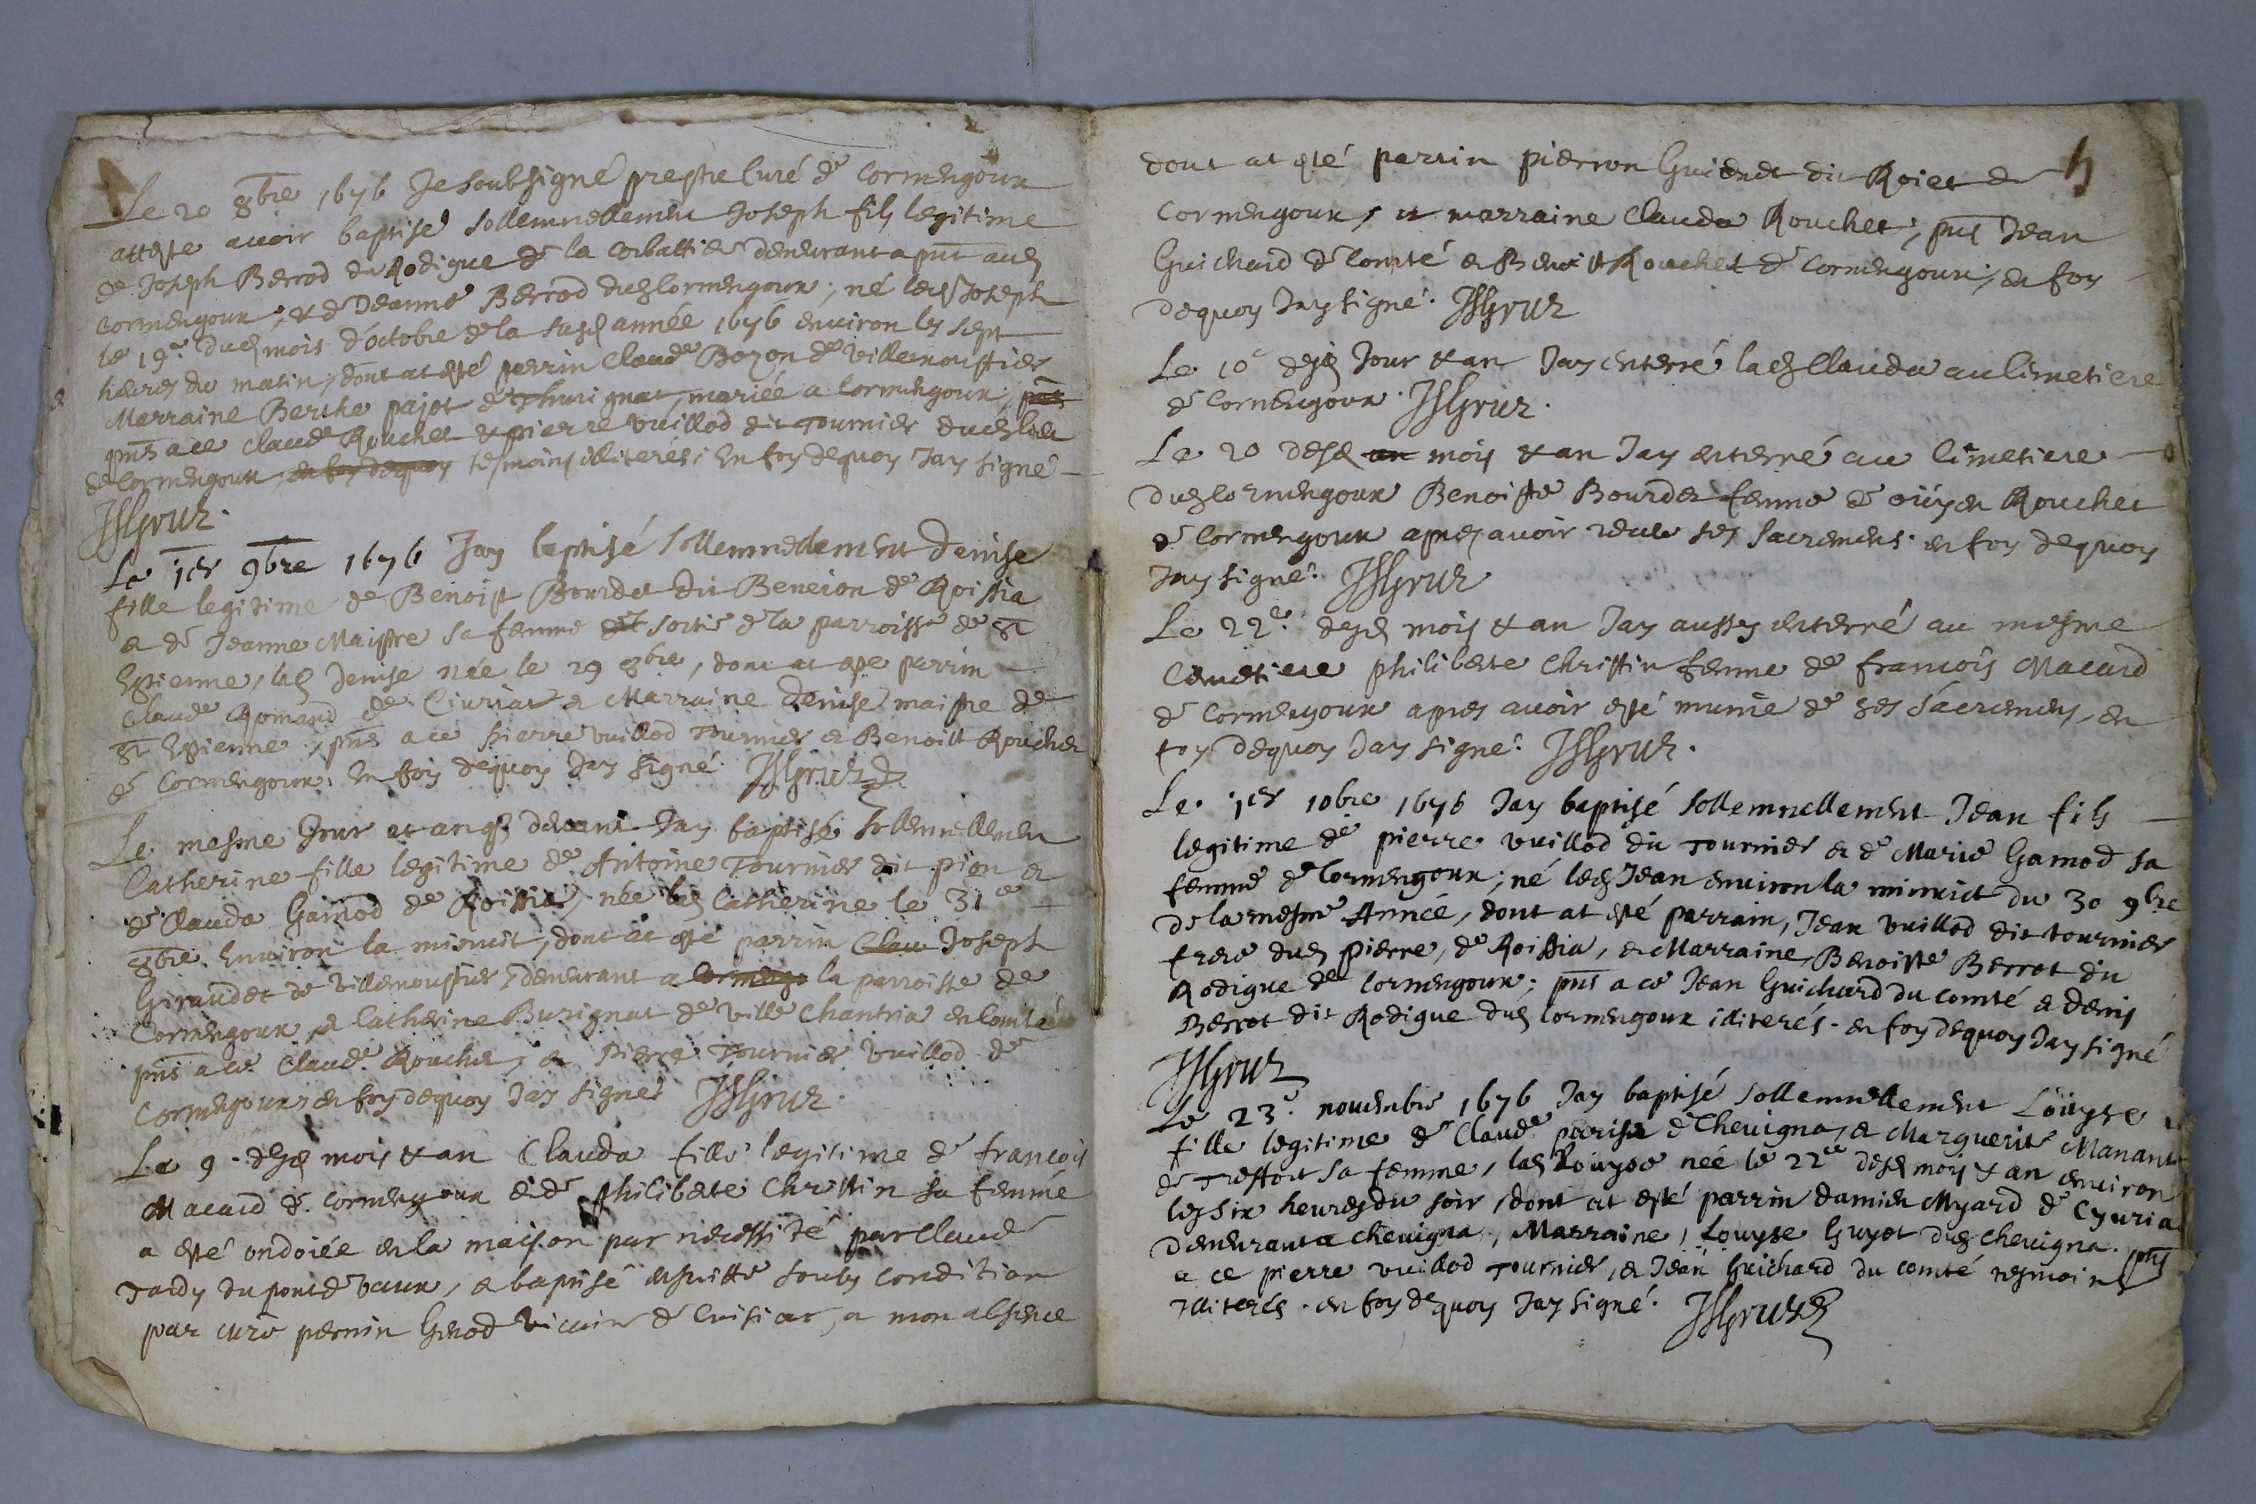 Le 20 8bre 1676 Je soubsigné prestre Curé de Cormengoux
atteste avoir baptisé sollemnellement Joseph fils legitime
de Joseph Berrod du Rodigue de la demeurant a pnt aud
Cormengoux, & de Jeanne Berrod dud Cormengoux; né led Joseph
le 19e dud mois d'octobre de la susd année 1676 environ les sept
heures du matin, dont at esté parrin Claude Bozon de Villemoustier
Marraine Berthe pajot de Thurignat, mariée a Cormengoux, pns
pns a ce Claude Rouchet & pierre Vuillod dit Tournier dud lieu
de Cormengoux, en foy dequoy tesmoins illiterés; En foy dequoy Jay signé

Le 1er 9bre 1676 Jay baptisé sollemnellement Denise
fille legitime de Benoist Bourdet dit Beneion de Roissia
& de Jeanne Maistre sa femme sortie de la parroisse de St
Estienne, lad Denise née le 29 8bre, dont at esté parrin
Claude Romand de Civriat & Marraine Denise maistre de
St Estienne, pns a ce Pierre Vuillod Tournier & Benoist Rouchet
de Cormengoux. En foy dequoy Jay signé
Le mesme Jour et an que devant Jay baptisé sollemnellement
Catherine fille legitime de Antoine Tournier dit pion &
de Clauda Gamod de Roissia, née lad Catherine le 31e
8bre Environ la minuit, dont at esté parrin Clau Joseph
Giraudet de Villemoustier, demeurant a Cormengo la parroisse de
Cormengoux, & Catherine Burignat de Ville Chantria en Comté
pns a ce Claude Rouchet, & Pierre Tournier Vuillod de
Cormengoux, en foy dequoy Jay signé
Le 9 desd mois & an Clauda fille legitime de francois
Macard de Cormengoux & de philiberte Christin sa femme
a esté ondoiée en la maison par necessité par Claude
Tardy du pont de vaux, & baptisé ensuitte soubs condition
par mre pernin Gerod vicaire de Cuisiat, a mon absence
dont at esté parrin pierron Guichet dit Roiet de
Cormengoux, & marraine Clauda Rouchet, pns Jean
Guichard de Comté & Benoist Rouchet de Cormengoux, en foy
dequoy Jay signé.
Le 10e desd Jour & an Jay enterré lad Clauda au Cimetiere
de Cormengoux.
Le 20 desd an mois & an Jay enterré au Cimetiere
dud Cormengoux Benoiste Bourdet femme de Rouchet
de Cormengoux apres avoir receu ses sacremens. en foy dequoy
Jay signé.
Le 22e desd mois & an Jay aussy enterré au mesme
Cemetiere philiberte Christin femme de francois Macard
de Cormengoux apres avoir esté munie de ses sacremens, en
foy dequoy Jay signé.
Le 1er 10bre 1676 Jay baptisé sollemnellement Jean fils
legitime de pierre Vuillod dit Tournier & de Marie Gamod sa
femme de Cormengoux; né led Jean environ la minuict du 30 9bre
de la mesme Année, dont at esté parrain, Jean Vuillod dit tournier
frere dud Pierre, de Roissia, & Marraine, Benoiste Berrot du
Rodigue de Cormengoux; pns a ce Jean Guichard du Comté & Denis
Berrot dit Rodigue dud Cormengoux illiterés. en foy dequoy Jay signé

Le 23e. novembre 1676 Jay baptisé sollemnellement Loüyse
fille legitime de Claude de Chevigna, & Marguerite Manant
de Treffort sa femme, lad Louyse née le 22e desd mois & an environ
les six heures du soir, dont at esté parrin damien Myard de Cyuria
demeurant a Chevigna, Marraine, Louyse Guyot dud Chevigna. pns
a ce pierre Vuillod Tournier, & Jean Guichard du Comté tesmoins
Illiterés. en foy dequoy Jay signé.